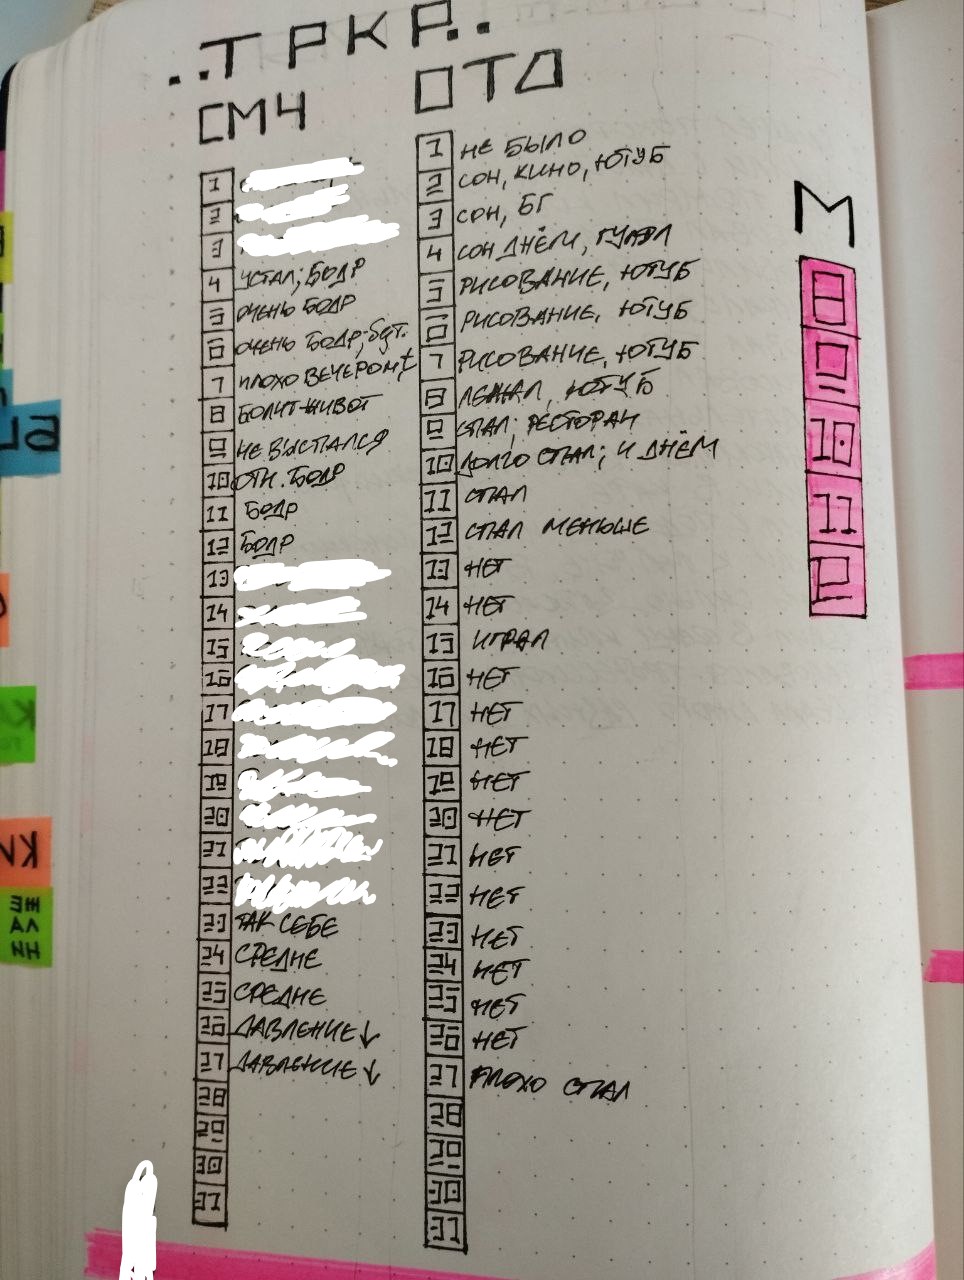 ..ТРКР..
СМЧ
1
2
3
4 УСТАЛ; БОДР
5 ОЧЕНЬ БОДР
6 ОЧЕНЬ БОДР;
7 ПЛОХО ВЕЧЕРОМ,
8 БОЛИТ ЖИВОТ
9 НЕ ВЫСПАЛСЯ
10 ОТН. БОДР
11 БОДР
12 БОДР
13
14
15
16
17
18
19
20
21
22
23 ТАК СЕБЕ
24 СРЕДНЕ
25 СРЕДНЕ
26 ДАВЛЕНИЕ ↓
27 ДАВЛЕНИЕ ↓
28
29
30
31
ОТД
1 НЕ БЫЛО
2 СОН, КИНО, ЮТУБ
3 СОН, БГ
4 СОН ДНЁМ, ГУЛЯЛ
5 РИСОВАНИЕ, ЮТУБ
6 РИСОВАНИЕ, ЮТУБ
7 РИСОВАНИЕ, ЮТУБ
8 ЛЕЖАЛ, ЮТУБ
9 СПАЛ; РЕСТОРАН
10 ДОЛГО СПАЛ; И ДНЁМ
11 СПАЛ
12 СПАЛ МЕНЬШЕ
13 НЕТ
14 НЕТ
15 ИГРАЛ
16 НЕТ
17 НЕТ
18 НЕТ
19 НЕТ
20 НЕТ
21 НЕТ
22 НЕТ
23 НЕТ
24 НЕТ
25 НЕТ
26 НЕТ
27 ПЛОХО СПАЛ
28
29
30
31
М
8
9
10
11
КИ